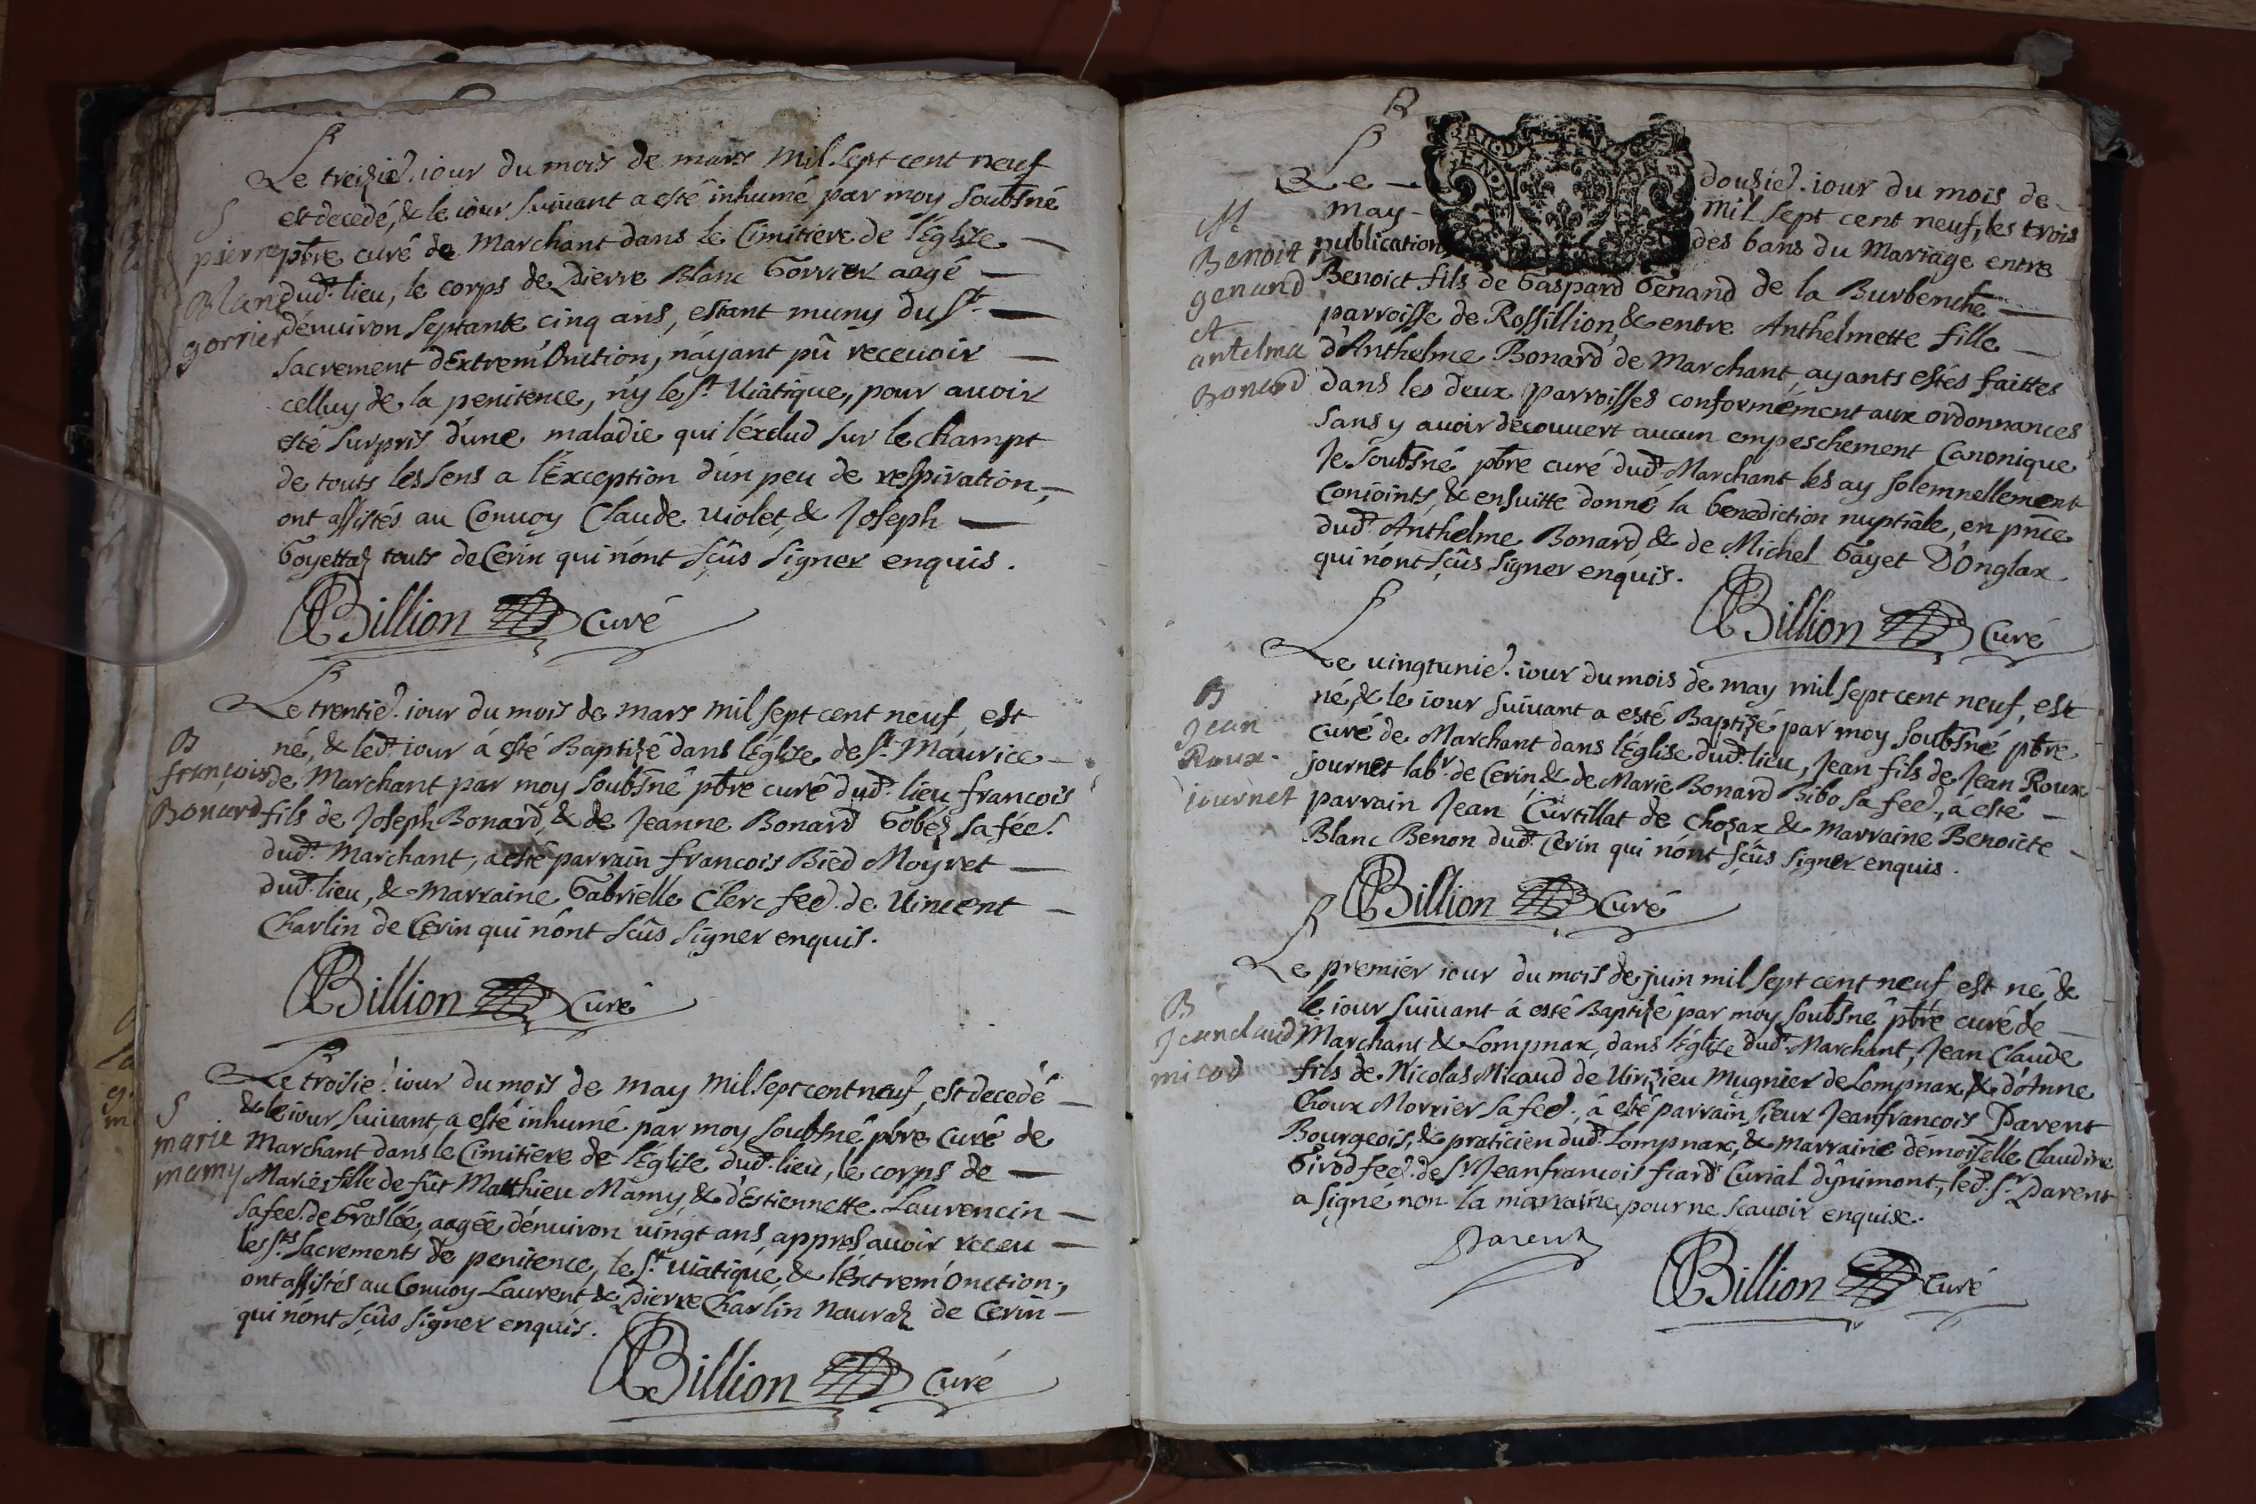 Le treizie. iour du mois de mars mil sept cent neuf
est decedé, & le iour suiuant a esté inhumé par moy soubsné
S
pierre
Blanc
gorrier
pbre curé de Marchant dans le Cimitiere de l'Eglise
dud. lieu, le corps de Pierre Blanc Gorrier aagé
dénuiron septante cinq ans, estant muny du St.
sacrement dExtrem'Onction, n'ayant pû receuoir
celluy de la penitence, n'y le St. Uiatique, pour auoir
esté surpris d'une maladie qui l'éxclud sur le champt
de touts les sens a l'Exception d'un peu de respiration,
ont assistés au Conuoy Claude Uiolet, & Joseph
Goyettaz touts de Cerin qui n'ont sçûs signer enquis.
Billion Curé
Le trentie. iour du mois de mars mil sept cent neuf, est
né, & led. iour á esté Baptizé dans l'église de St. Maurice
B
francois
Bonard
de Marchant par moy soubsné pbre curé dud. lieu francois
fils de Joseph Bonard, & de Jeanne Bonard Gobéz sa fée.
dud. Marchant, a esté parrain francois Bied Moyret
dud. lieu, & Marraine Gabrielle Clerc feé. de Uincent
Charlin de Cerin qui n'ont sçûs signer enquis.
Billion Curé
Le troisie. iour du mois de may mil sept cent neuf, est decedé
& le iour suiuant, a esté inhumé par moy soubsné pbre Curé de
S
marie
mamy
Marchant dans le Cimitiere de l'Eglise dud. lieu, le corps de
Marie, fille de fût Matthieu Mamy, & d'Estiennette Laurencin
sa feé. de Groslée, aagée dénuiron uingt ans appres auoir receu
les Sts. Sacrements de penitence, le St. uiatique, & l'Extrem'Onction,
ont assistés au Conuoy Laurent & Pierre Charlin Nouraz de Cerin
qui n'ont sçûs signer enquis.
Billion Curé
Le douzie. iour du mois de
may mil sept cent neuf, les trois
M
Benoit
genand
et
antelma
Bonard
publication des bans du Mariage entre
Benoict fils de Gaspard Génand de la Burbenche
parroisse de Rossillion, & entre Anthelmette fille
d'Anthelme Bonard de Marchant, ayants estés faittes
dans les deux parroisses conformément aux ordonnances
sans y auoir découuert aucun empeschement Canonique
Je soubsné pbre curé dud. Marchant les ay solemnellement
Conioints, & ensuitte donné la benediction nuptiale, en pnce
dud. Anthelme Bonard, & de Michel Gayet D'Onglax
qui n'ont sçûs signer enquis.
Billion Curé
Le uingtunie. iour du mois de may mil sept cent neuf, est
né, & le iour suiuant a esté Baptizé par moy soubsné pbre
B
Jean
Roux
journet
curé de Marchant dans l'Eglise dud. lieu, Jean fils de Jean Roux
journet labr. de Cerin & de Marie Bonard Bibo sa feé., á esté
parrain Jean Curtillat de Chozax & marraine Benoicte
Blanc Benon dud. Cerin qui n'ont sçûs signer enquis.
Billion Curé
Le premier iour du mois de juin mil sept cent neuf est né, &
le iour suiuant á esté Baptizé par moy soubsné pbre curé de
B
Jeanclaud
micod
Marchant & Lompnax, dans l'église dud. Marchant, Jean Claude
fils de Nicolas Micaud de Uirizieu Mugnier de Lompnax, & d'Anne
Choux Morrier sa feé., á esté parrain sieur Jeanfrancois Parent
Bourgeois, & praticien dud. Lompnax, & marraine démoiselle Claudine
Girod feé. de Sr. Jeanfrancois fiard Curial d'ynimont, led. Sr. Parent
a signe non la marraine pour ne scauoir enquise.
Parent
Billion Curé